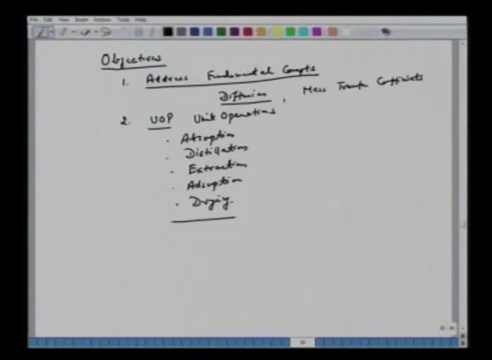 File Edit View Insert Actions Tools Help
Objectives
1. Address Fundamental Concepts
Diffusion, Mass Transfer Coefficients
2. UOP Unit Operations
. Absorption
. Distillation
- Extraction
. Adsorption
. Drying.